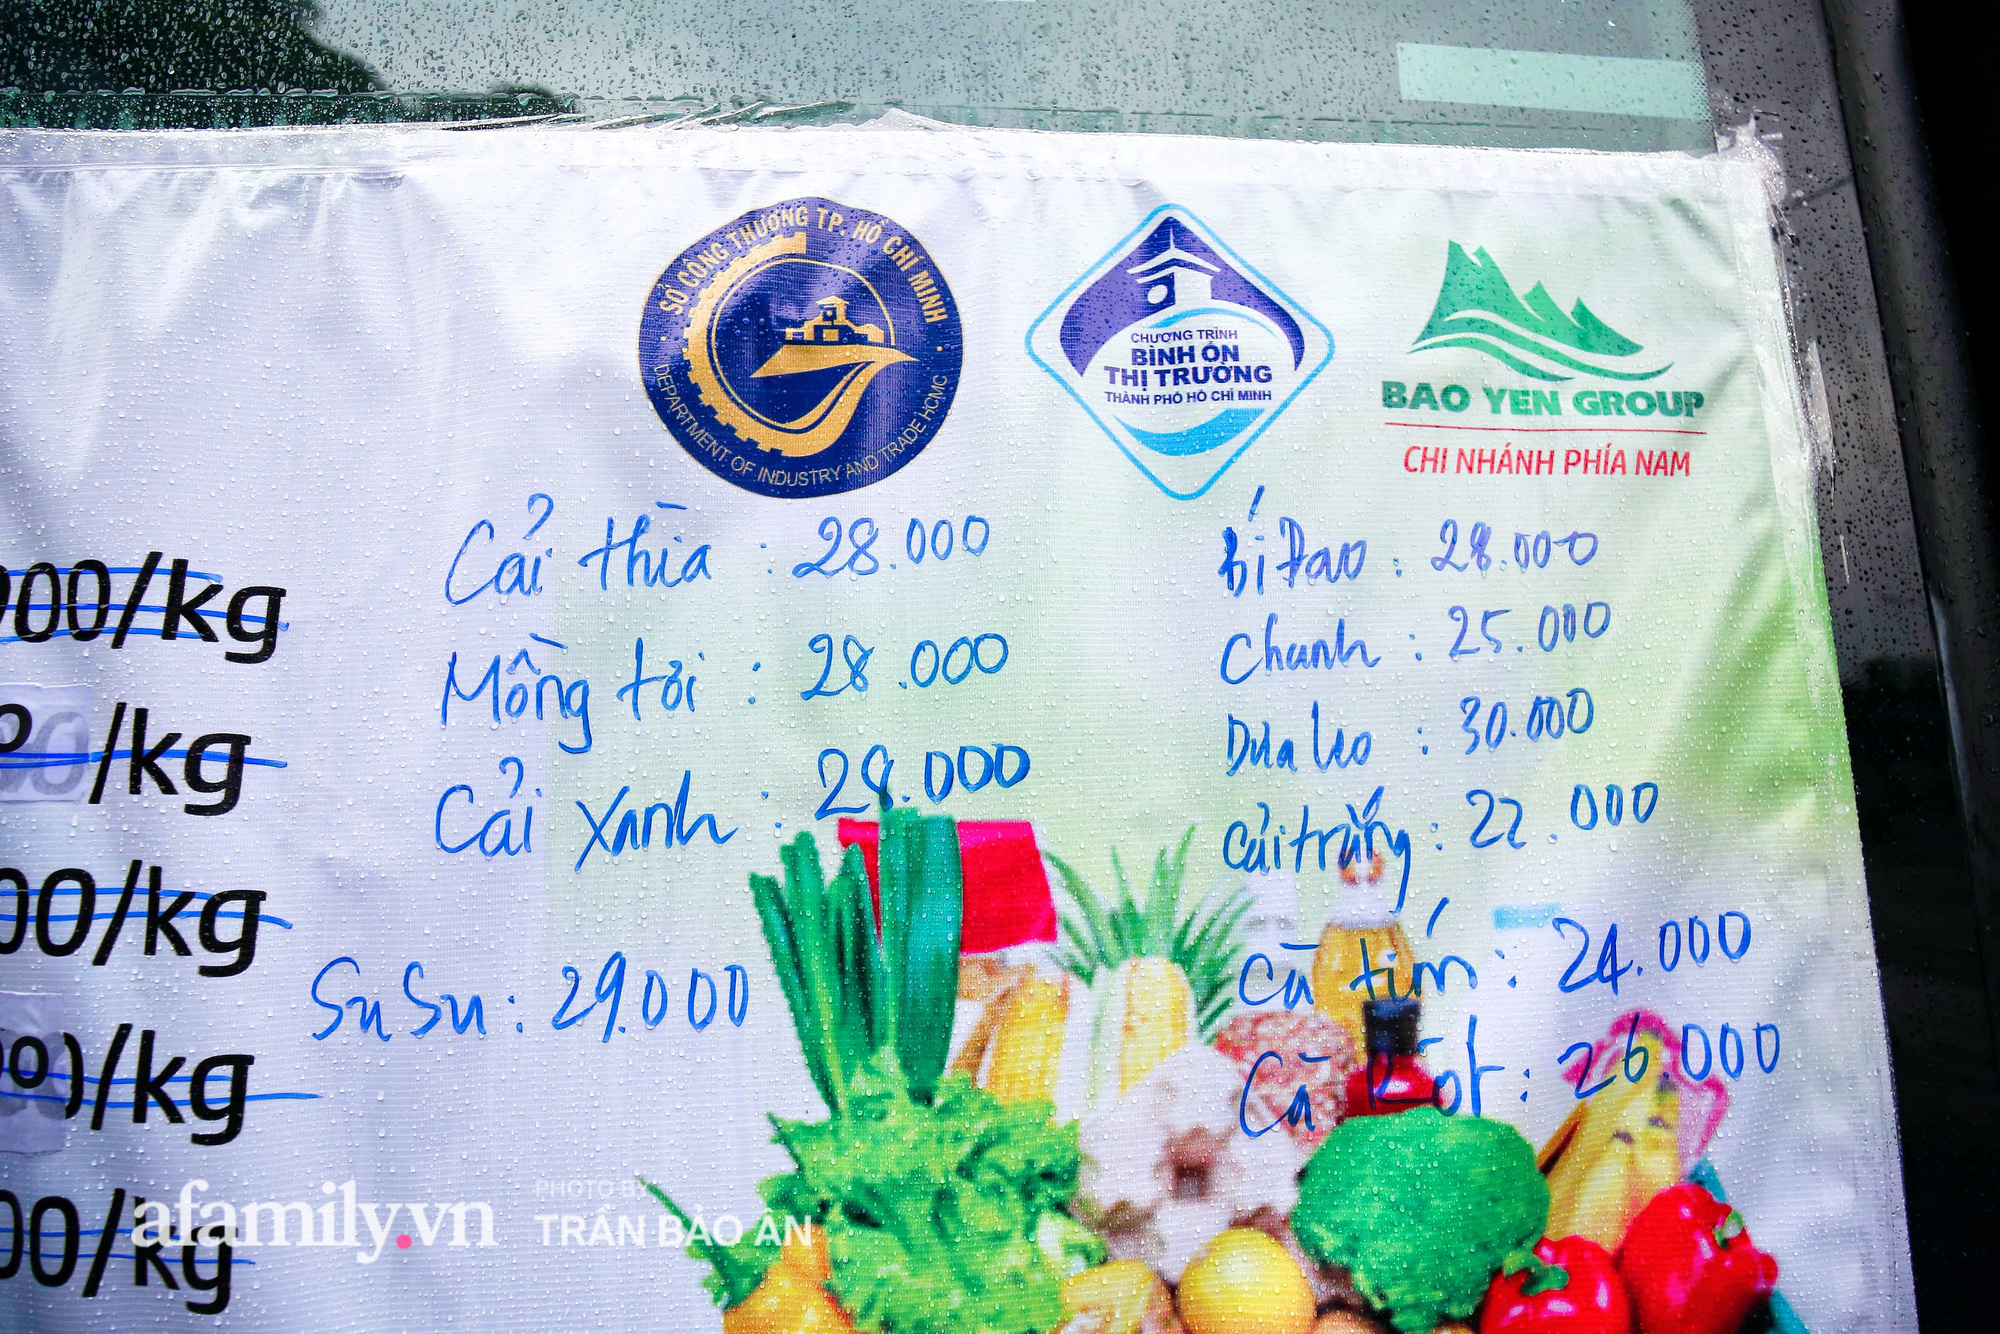 SỞ CÔNG THƯƠNG TP. HỒ CHÍ MINH
DEPARTMENT OF INDUSTRY AND TRADE HCMC
CHƯƠNG TRÌNH
BÌNH ỔN
THỊ TRƯỜNG
THÀNH PHỐ HỒ CHÍ MINH
BAO YEN GROUP
CHI NHÁNH PHÍA NAM
000/kg
/kg
00/kg
/kg
00/kg
Cải thìa : 28.000
Mồng tơi : 28.000
Cải xanh : 28.000
Su Su : 29.000
Bí Đao : 28.000
Chanh : 25.000
Dưa leo : 30.000
Cải trắng : 22.000
Cà tím : 24.000
Cà Rốt : 26.000
afamily.vn
PHOTO BY
TRẦN BẢO ÂN